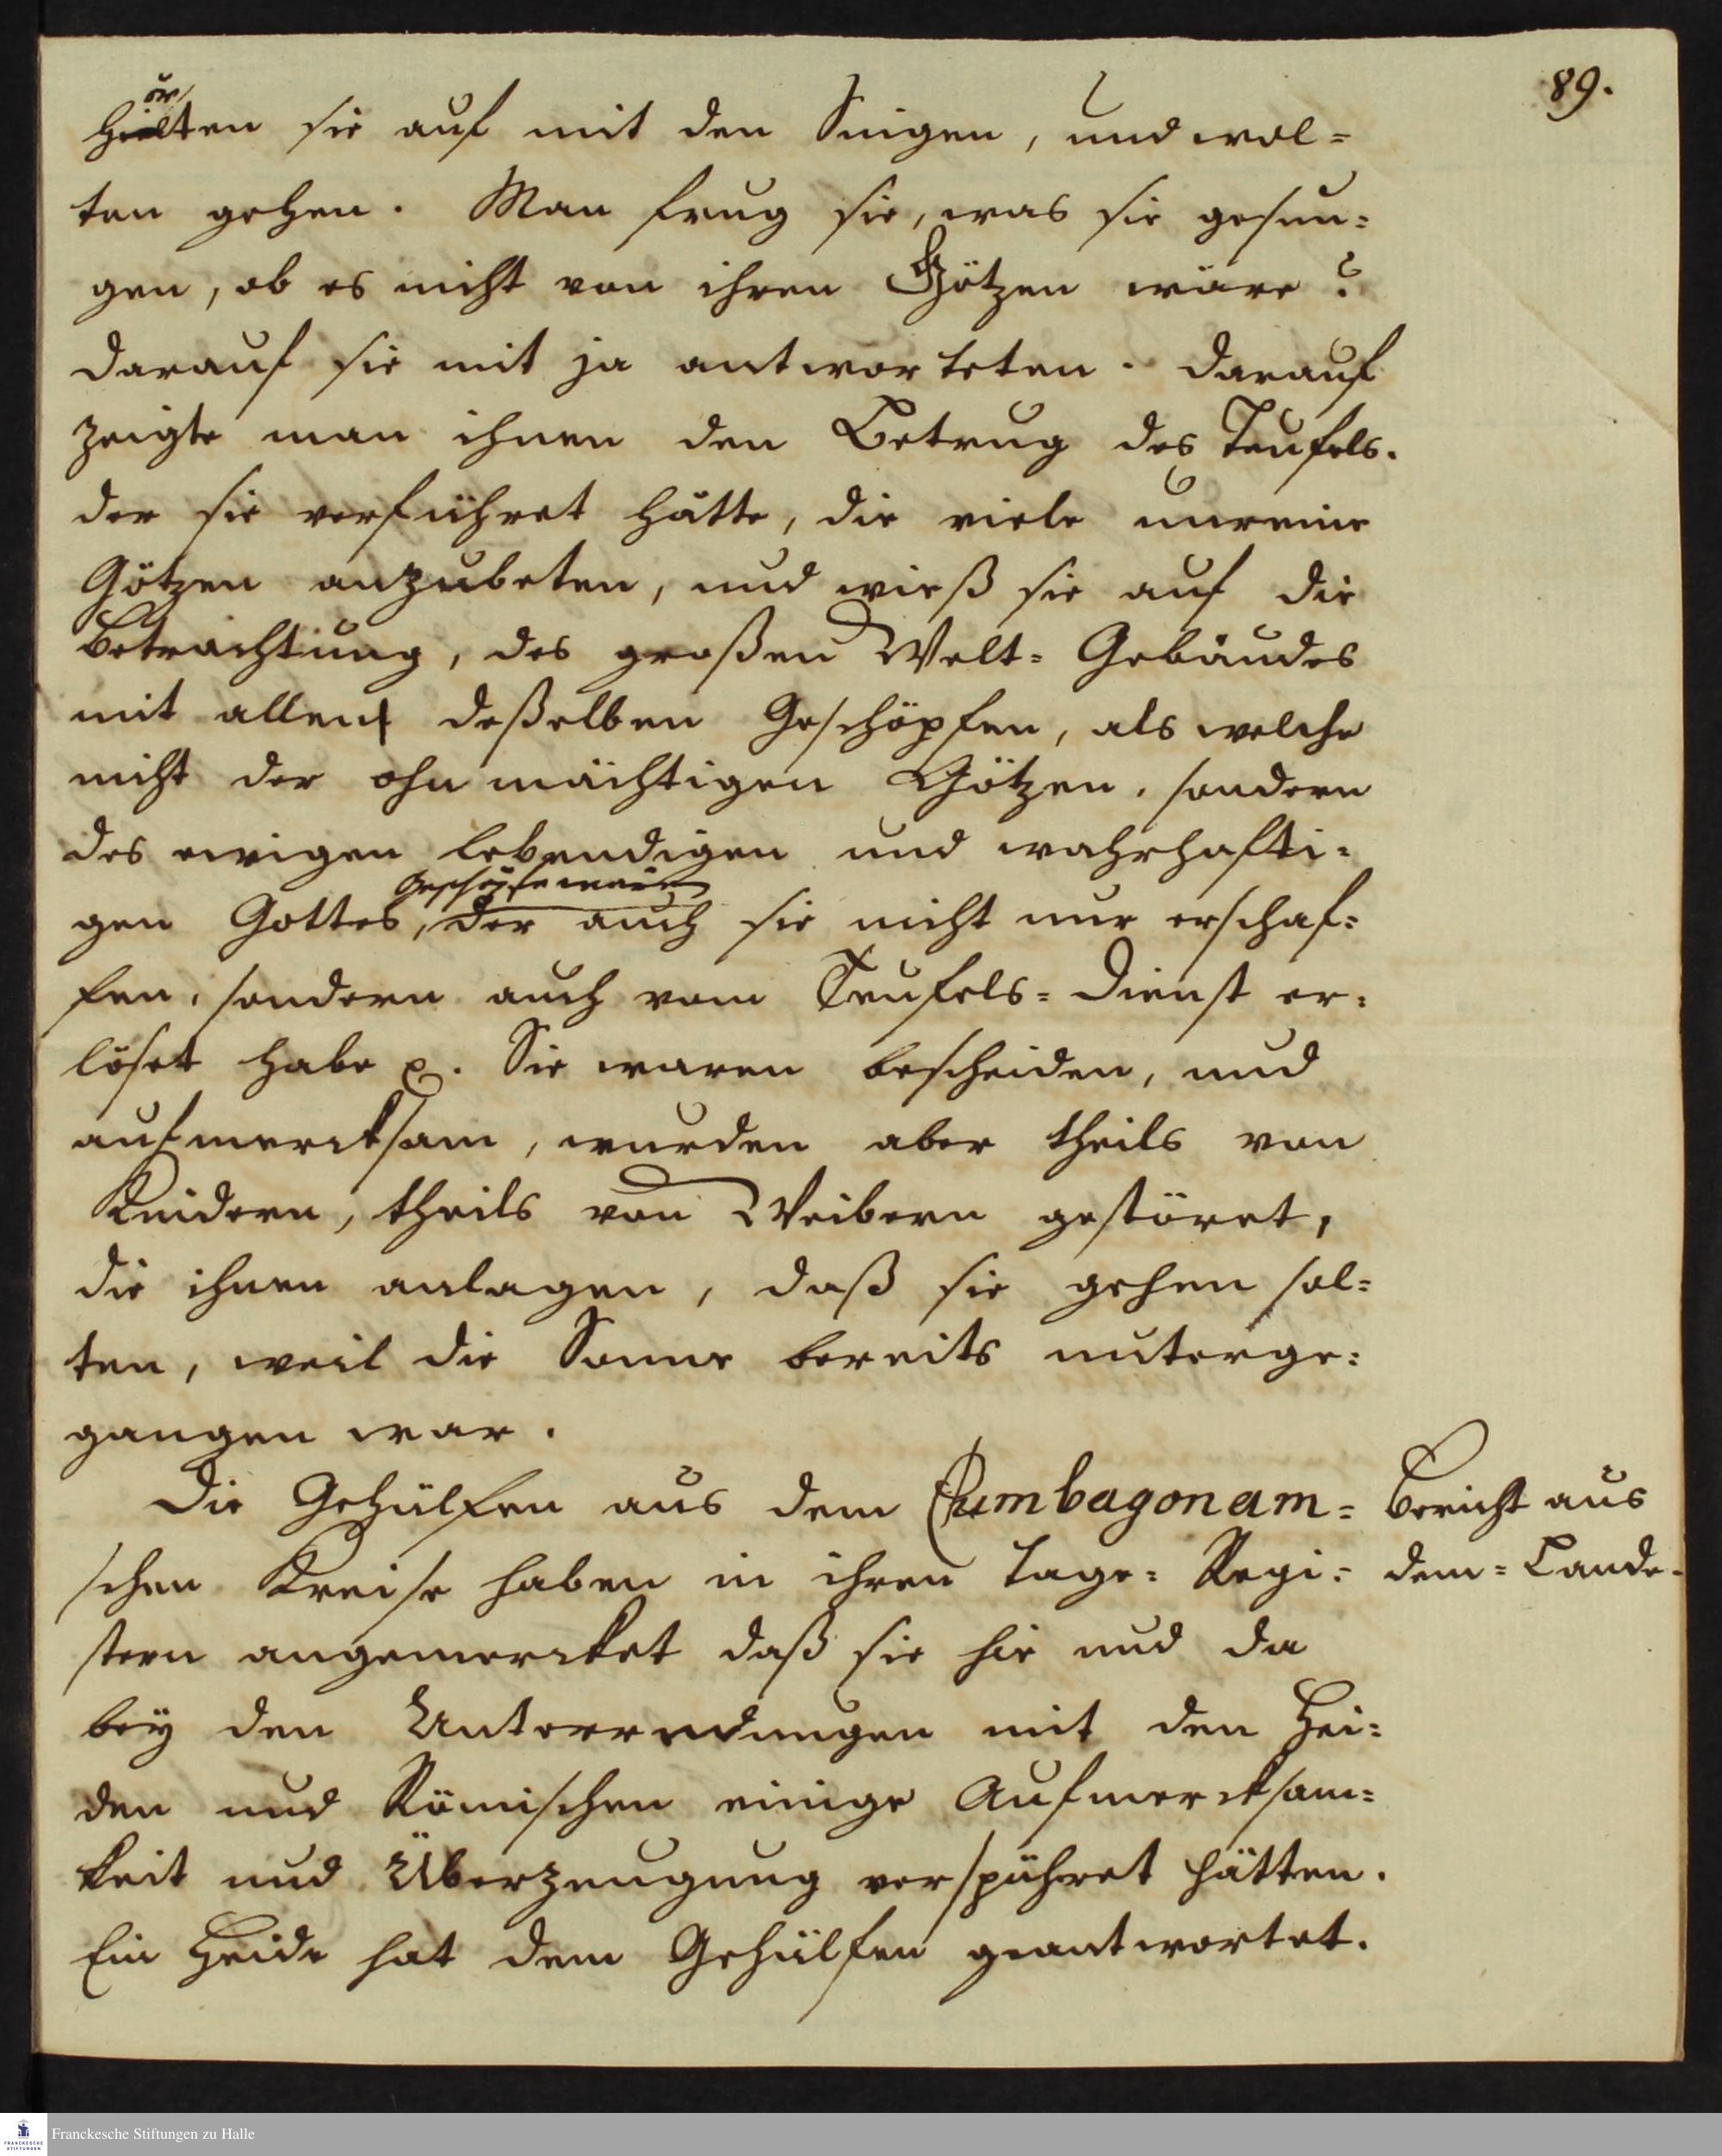 89.
hörten sie auf mit den Singen, und wol=
ten gehen. Man frug sie, was sie gesun=
gen, ob es nicht von ihren Götzen wäre?
darauf sie mit ja antworteten. darauf
zeigte man ihnen den Betrug des Teufels.
der sie verführet hätte, die viele unreine
Götzen anzubeten, und wieß sie auf die
betrachtung, des großen Welt= Gebäudes
mit allen deßelben Geschöpfen, als welche
nicht der ohnmächtigen Götzen, sondern
des ewigen lebendigen und wahrhafti=
Geschöpfe wären
gen Gottes, der auch sie nicht nur erschaf=
fen, sondern auch vom Teufels= Dienst er=
löset habe p. Sie waren bescheiden, und
aufmercksam, wurden aber theils von
Kindern, theils von Weibern gestöret,
die ihnen anlagen, daß sie gehen sol=
ten, weil die Sonne bereits unterge=
gangen war.
Die Gehülfen aus dem Cumbagonam=
schen Kreise haben in ihren Tage= Regi=
stern angemercket daß sie hie und da
bey den Unterredungen mit den Hei=
den und Römischen einige Aufmercksam=
keit und Überzeugung verspühret hätten.
Ein Heide hat dem Gehülfen geantwortet.
Bericht aus
dem= Lande.
Franckesche Stiftungen zu Halle
FRANCKESCHE
STIFTUNGEN